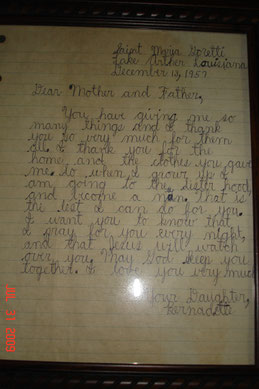 Saint Maria Goretti
Lake Arthur Louisiana
December 12, 1957
Dear Mother and Father,
You have giving me so
many things and I thank
you so very much for them
all. I thank you for the
home and the clothes you gave
me. So when I grow up I
am going to the sister hood
and become a nun. That is
the lest I can do for you.
I want you to know that
I pray for you every night,
and that Jesus will watch
over you. May God keep you
together. I love you very much
Your Daughter,
Bernadette
JUL 31 2009